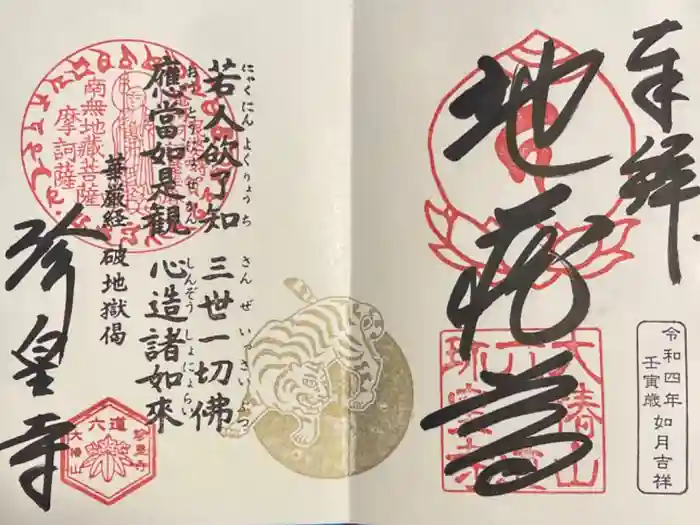 奉拝
地蔵尊
大椿山
六道
珍皇寺
令和四年
壬寅歳 如月吉祥
若人欲了知 三世一切佛
にゃくにん よくりょうち さんぜいっさいぶつ
應當如是観 心造諸如來
おうとうにょぜかん しんぞうしょにょらい
華厳経 破地獄偈
南無地蔵菩薩
摩訶薩
珍皇寺
六道
珍皇寺
大椿山